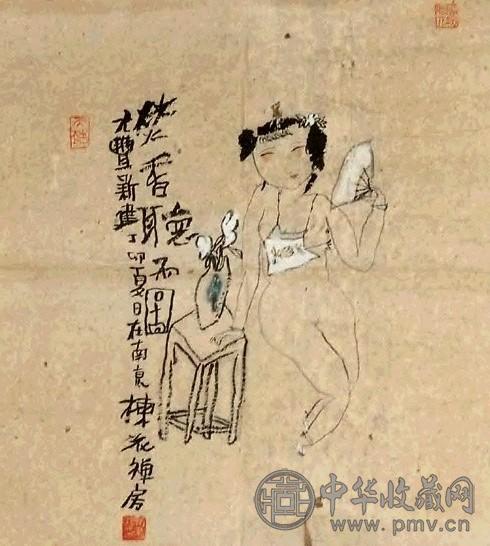 焚香聽雨圖
大豐新建丁卯夏日在南京楝花禪房
中华收藏网
www.pmv.cn